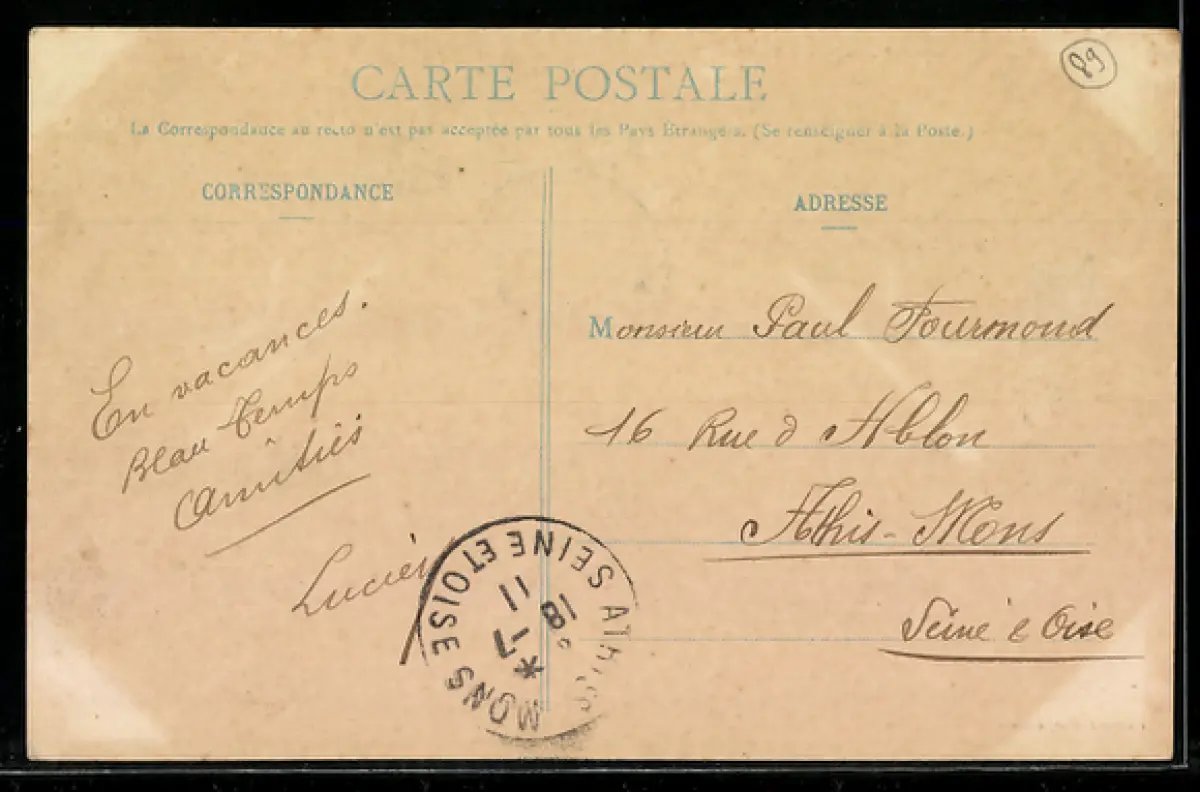 CARTE POSTALE
89
La Correspondance au recto n'est pas acceptée par tous les Pays Étrangers. (Se renseigner à la Poste.)
CORRESPONDANCE
ADRESSE
En vacances.
Beau temps
Amitiés
Lucien
Monsieur Paul Fourmond
16 Rue d Ablon
Athis-Mons
Seine & Oise
ATHIS MONS SEINE ET OISE
18
-7
11